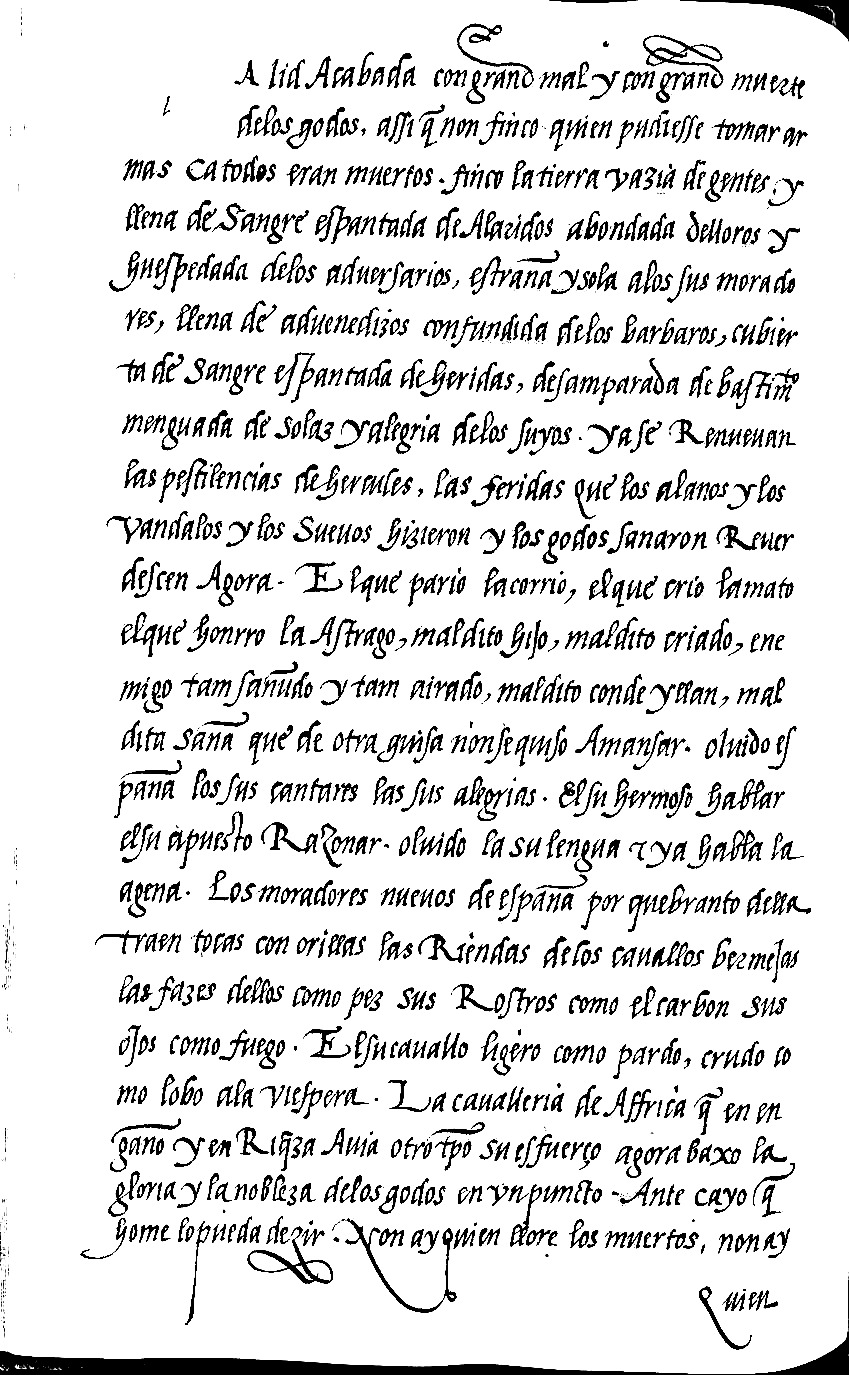 A lid Acabada con grand mal y con grand muerte
l
delos godos, assi q̃ non finco quien pudiesse tomar ar
mas ca todos eran muertos. finco la tierra vazia de gentes, y
llena de Sangre espantada de Alaridos abondada delloros y
huespedada delos adversarios, estraña y sola alos sus morado
res, llena de aduenedizos confundida delos barbaros, cubier
ta de Sangre espantada de heridas, desamparada de bastimto
menguada de solaz y alegria delos suyos. ya se Renuevan
las pestilencias de hercules, las feridas que los alanos y los
vandalos y los Suevos hizieron y los godos sanaron Rever
descen Agora. El que pario la corrio, el que crio la mato
el que honrro la Astrago, maldito hijo, maldito criado, ene
migo tam sañudo y tam airado, maldito conde yllan, mal
dita saña que de otra guisa non se quiso Amansar. oluido es
paña los sus cantares las sus alegrias. El su hermoso hablar
el su apuesto Razonar. oluido la su lengua τ ya habla la
agena. Los moradores nuevos de españa por quebranto della
traen tocas con orillas las Riendas de los cavallos bermejas
las fazes dellos como pez sus Rostros como el carbon sus
ojos como fuego. El su cavallo ligero como pardo, crudo co
mo lobo ala viespera. La cavalleria de Affrica q̃ en en
gaño y en Riq̃za Avia otro tpo su esfuerço agora baxo la
gloria y la nobleza delos godos en vn puncto. Ante cayo q̃
home lo pueda dezir. Non ay quien llore los muertos, non ay
quien